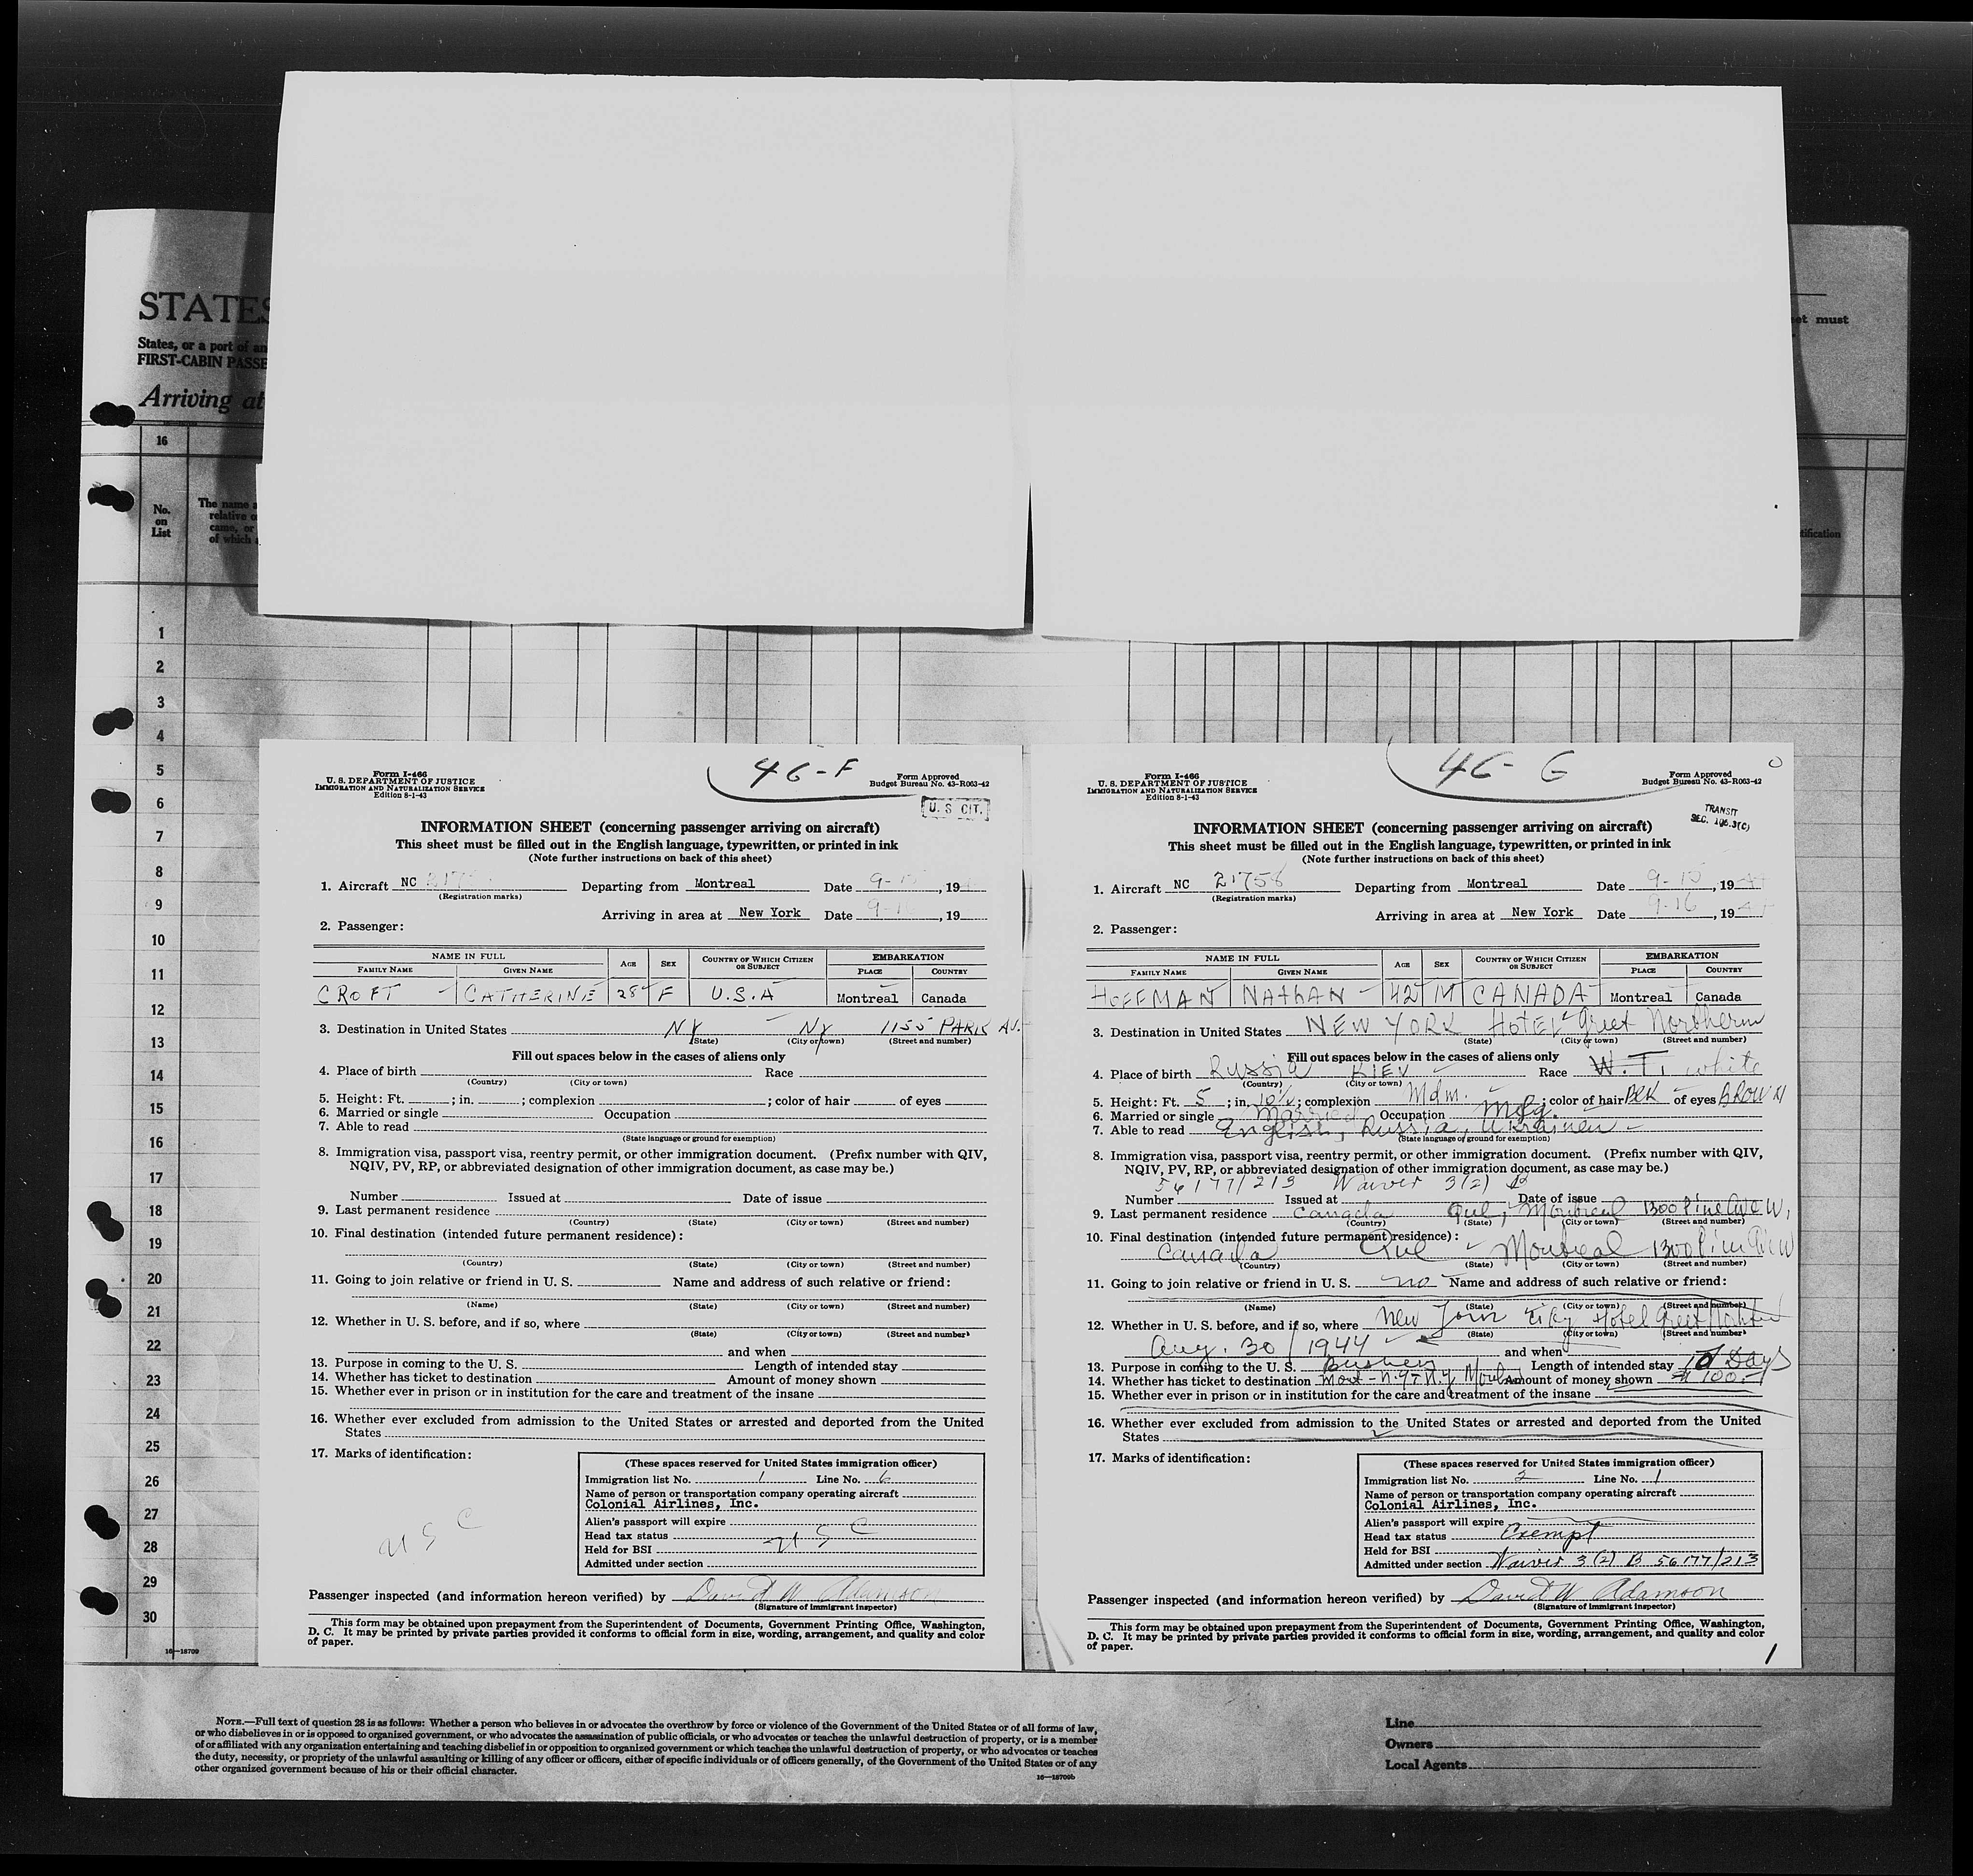 STATES
States, or a port of an
FIRST-CABIN PASSE
Arriving at
16
No.
on
List
The name a
relative o
came, or
of which
et must
tification
1
2
3
4
5
6
7
8
9
10
11
12
13
14
15
16
17
18
19
20
21
22
23
24
25
26
27
28
29
30
16—18709
46-F
Form I-466
U. S. DEPARTMENT OF JUSTICE
IMMIGRATION AND NATURALIZATION SERVICE
Edition 8-1-43
Form Approved
Budget Bureau No. 43-R063-42
U. S. CIT.
INFORMATION SHEET (concerning passenger arriving on aircraft)
This sheet must be filled out in the English language, typewritten, or printed in ink
(Note further instructions on back of this sheet)
1. Aircraft NC Departing from Montreal Date 9-15, 19
(Registration marks)
Arriving in area at New York Date 9-16, 19
2. Passenger:
NAME IN FULL AGE SEX COUNTRY OF WHICH CITIZEN OR SUBJECT EMBARKATION
FAMILY NAME GIVEN NAME PLACE COUNTRY
CROFT CATHERINE 28 F U.S.A Montreal Canada
3. Destination in United States NY NY 1155 PARK AV.
(State) (City or town) (Street and number)
Fill out spaces below in the cases of aliens only
4. Place of birth Race
(Country) (City or town)
5. Height: Ft. ; in. ; complexion ; color of hair of eyes
6. Married or single Occupation
7. Able to read
(State language or ground for exemption)
8. Immigration visa, passport visa, reentry permit, or other immigration document. (Prefix number with QIV,
NQIV, PV, RP, or abbreviated designation of other immigration document, as case may be.)
Number Issued at Date of issue
9. Last permanent residence
(Country) (State) (City or town) (Street and number)
10. Final destination (intended future permanent residence):
(Country) (State) (City or town) (Street and number)
11. Going to join relative or friend in U. S. Name and address of such relative or friend:
(Name) (State) (City or town) (Street and number)
12. Whether in U. S. before, and if so, where
(State) (City or town) (Street and number)
and when
13. Purpose in coming to the U. S. Length of intended stay
14. Whether has ticket to destination Amount of money shown
15. Whether ever in prison or in institution for the care and treatment of the insane
16. Whether ever excluded from admission to the United States or arrested and deported from the United
States
17. Marks of identification:
U S C
(These spaces reserved for United States immigration officer)
Immigration list No. 1 Line No. 6
Name of person or transportation company operating aircraft
Colonial Airlines, Inc.
Alien's passport will expire
Head tax status U S C
Held for BSI
Admitted under section
Passenger inspected (and information hereon verified) by David W Adamson
(Signature of immigrant inspector)
This form may be obtained upon prepayment from the Superintendent of Documents, Government Printing Office, Washington,
D. C. It may be printed by private parties provided it conforms to official form in size, wording, arrangement, and quality and color
of paper.
46-G
Form I-466
U. S. DEPARTMENT OF JUSTICE
IMMIGRATION AND NATURALIZATION SERVICE
Edition 8-1-43
Form Approved
Budget Bureau No. 43-R063-42
TRANSIT
SEC. 106.3(C)
INFORMATION SHEET (concerning passenger arriving on aircraft)
This sheet must be filled out in the English language, typewritten, or printed in ink
(Note further instructions on back of this sheet)
1. Aircraft NC 21758 Departing from Montreal Date 9-15, 1944
(Registration marks)
Arriving in area at New York Date 9-16, 1944
2. Passenger:
NAME IN FULL AGE SEX COUNTRY OF WHICH CITIZEN OR SUBJECT EMBARKATION
FAMILY NAME GIVEN NAME PLACE COUNTRY
HOFFMAN NAThAN 42 M CANADA Montreal Canada
3. Destination in United States NEW YORK HOTEL Greet Northern
(State) (City or town) (Street and number)
Fill out spaces below in the cases of aliens only
4. Place of birth Russia KIEV Race W. T. white
(Country) (City or town)
5. Height: Ft. 5 ; in. 10½ ; complexion Mdm. ; color of hair BLK of eyes BROWN
6. Married or single Married Occupation Mfg.
7. Able to read English, Russia, Ukrainen
(State language or ground for exemption)
8. Immigration visa, passport visa, reentry permit, or other immigration document. (Prefix number with QIV,
NQIV, PV, RP, or abbreviated designation of other immigration document, as case may be.)
56177/213 Waiver 3(2) B
Number Issued at Date of issue
9. Last permanent residence Canada Que, Montreal 1300 Pine Ave W.
(Country) (State) (City or town) (Street and number)
10. Final destination (intended future permanent residence):
Canada Que Montreal 1300 Pine Ave W
(Country) (State) (City or town) (Street and number)
11. Going to join relative or friend in U. S. no Name and address of such relative or friend:
(Name) (State) (City or town) (Street and number)
12. Whether in U. S. before, and if so, where New York City Hotel Greet
(State) (City or town) (Street and number)
Aug. 30/1944 and when
13. Purpose in coming to the U. S. Business Length of intended stay 10 Days
14. Whether has ticket to destination Mont-N.Y-N.Y Amount of money shown $100.
15. Whether ever in prison or in institution for the care and treatment of the insane
16. Whether ever excluded from admission to the United States or arrested and deported from the United
States
17. Marks of identification:
(These spaces reserved for United States immigration officer)
Immigration list No. 2 Line No. 1
Name of person or transportation company operating aircraft
Colonial Airlines, Inc.
Alien's passport will expire
Head tax status Exempt
Held for BSI
Admitted under section Waiver 3(2) B 56177/213
Passenger inspected (and information hereon verified) by David W Adamson
(Signature of immigrant inspector)
This form may be obtained upon prepayment from the Superintendent of Documents, Government Printing Office, Washington,
D. C. It may be printed by private parties provided it conforms to official form in size, wording, arrangement, and quality and color
of paper.
1
NOTE.—Full text of question 28 is as follows: Whether a person who believes in or advocates the overthrow by force or violence of the Government of the United States or of all forms of law,
or who disbelieves in or is opposed to organized government, or who advocates the assassination of public officials, or who advocates or teaches the unlawful destruction of property, or is a member
of or affiliated with any organization entertaining and teaching disbelief in or opposition to organized government or which teaches the unlawful destruction of property, or who advocates or teaches
the duty, necessity, or propriety of the unlawful assaulting or killing of any officer or officers, either of specific individuals or of officers generally, of the Government of the United States or of any
other organized government because of his or their official character.
16—18709b
Line
Owners
Local Agents